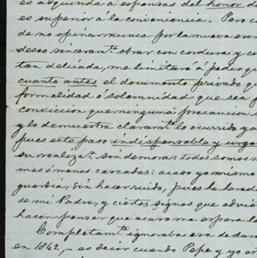 es adquirida a espensas del honor d
es superior á la conveniencia. Pero c
de no opinar nunca por la nueva
deseo sinceramte. obrar con cordura y co
tan delicado, me limitará á pedir q
cuanto antes el documento privado q
formalidad ó solemnidad que sea y
condicion que ninguna precaucion
y lo demuestra claramte. lo ocurrido y a
pues este paso indispensable y urge
su realizn. sin demora: todos somos m
mas ó menos cercados: acaso yo mismo
guardias, sin hacer ruido, pues la
de mi Padre, y ciertos signos que
hacen pensar que acaso me espera l
Completamte. ignoraba era de
en 1842, – es decir cuando Pepe y yo e